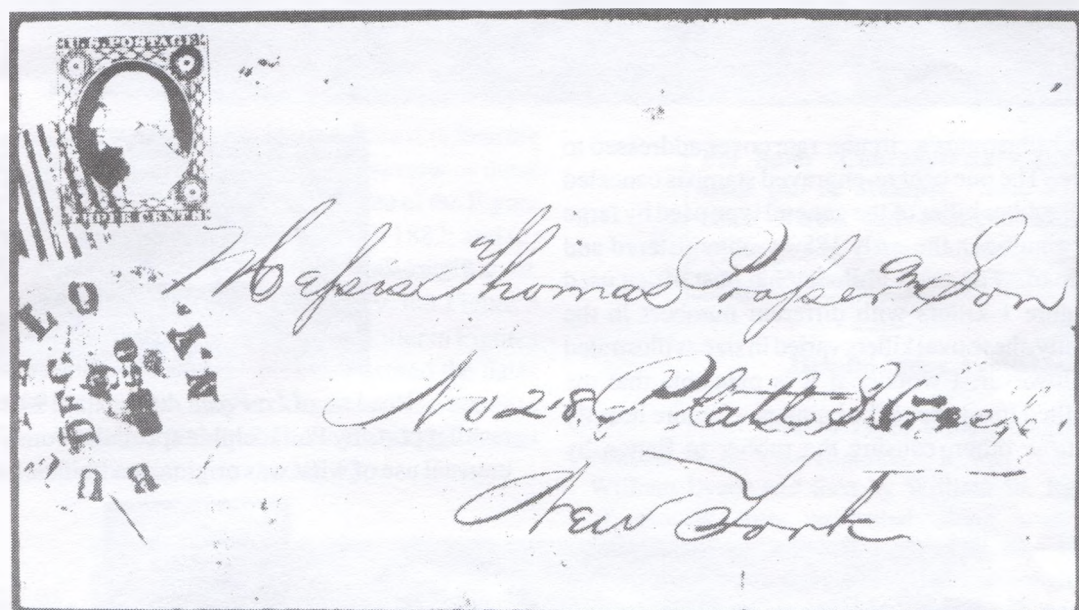 U.S. POSTAGE
THREE CENTS
BUFFALO N.Y.
Messrs Thomas Prosser & Son
No 28 Platt Street.
New York